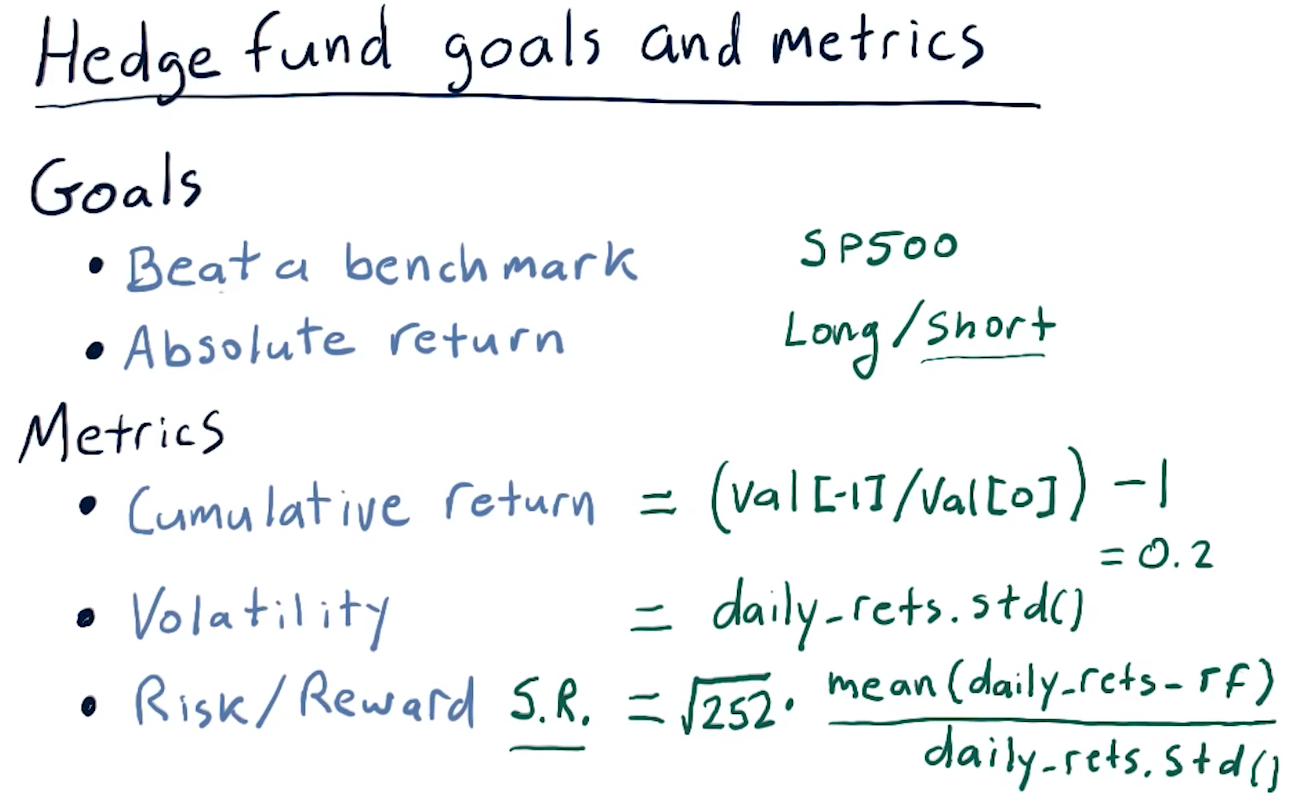 Hedge fund goals and metrics
Goals
• Beat a benchmark SP500
• Absolute return Long/short
Metrics
• Cumulative return = (val[-1]/val[0]) -1
= 0.2
• Volatility = daily_rets.std()
• Risk/Reward S.R. = √252 · mean(daily_rets - rf)
daily_rets.std()